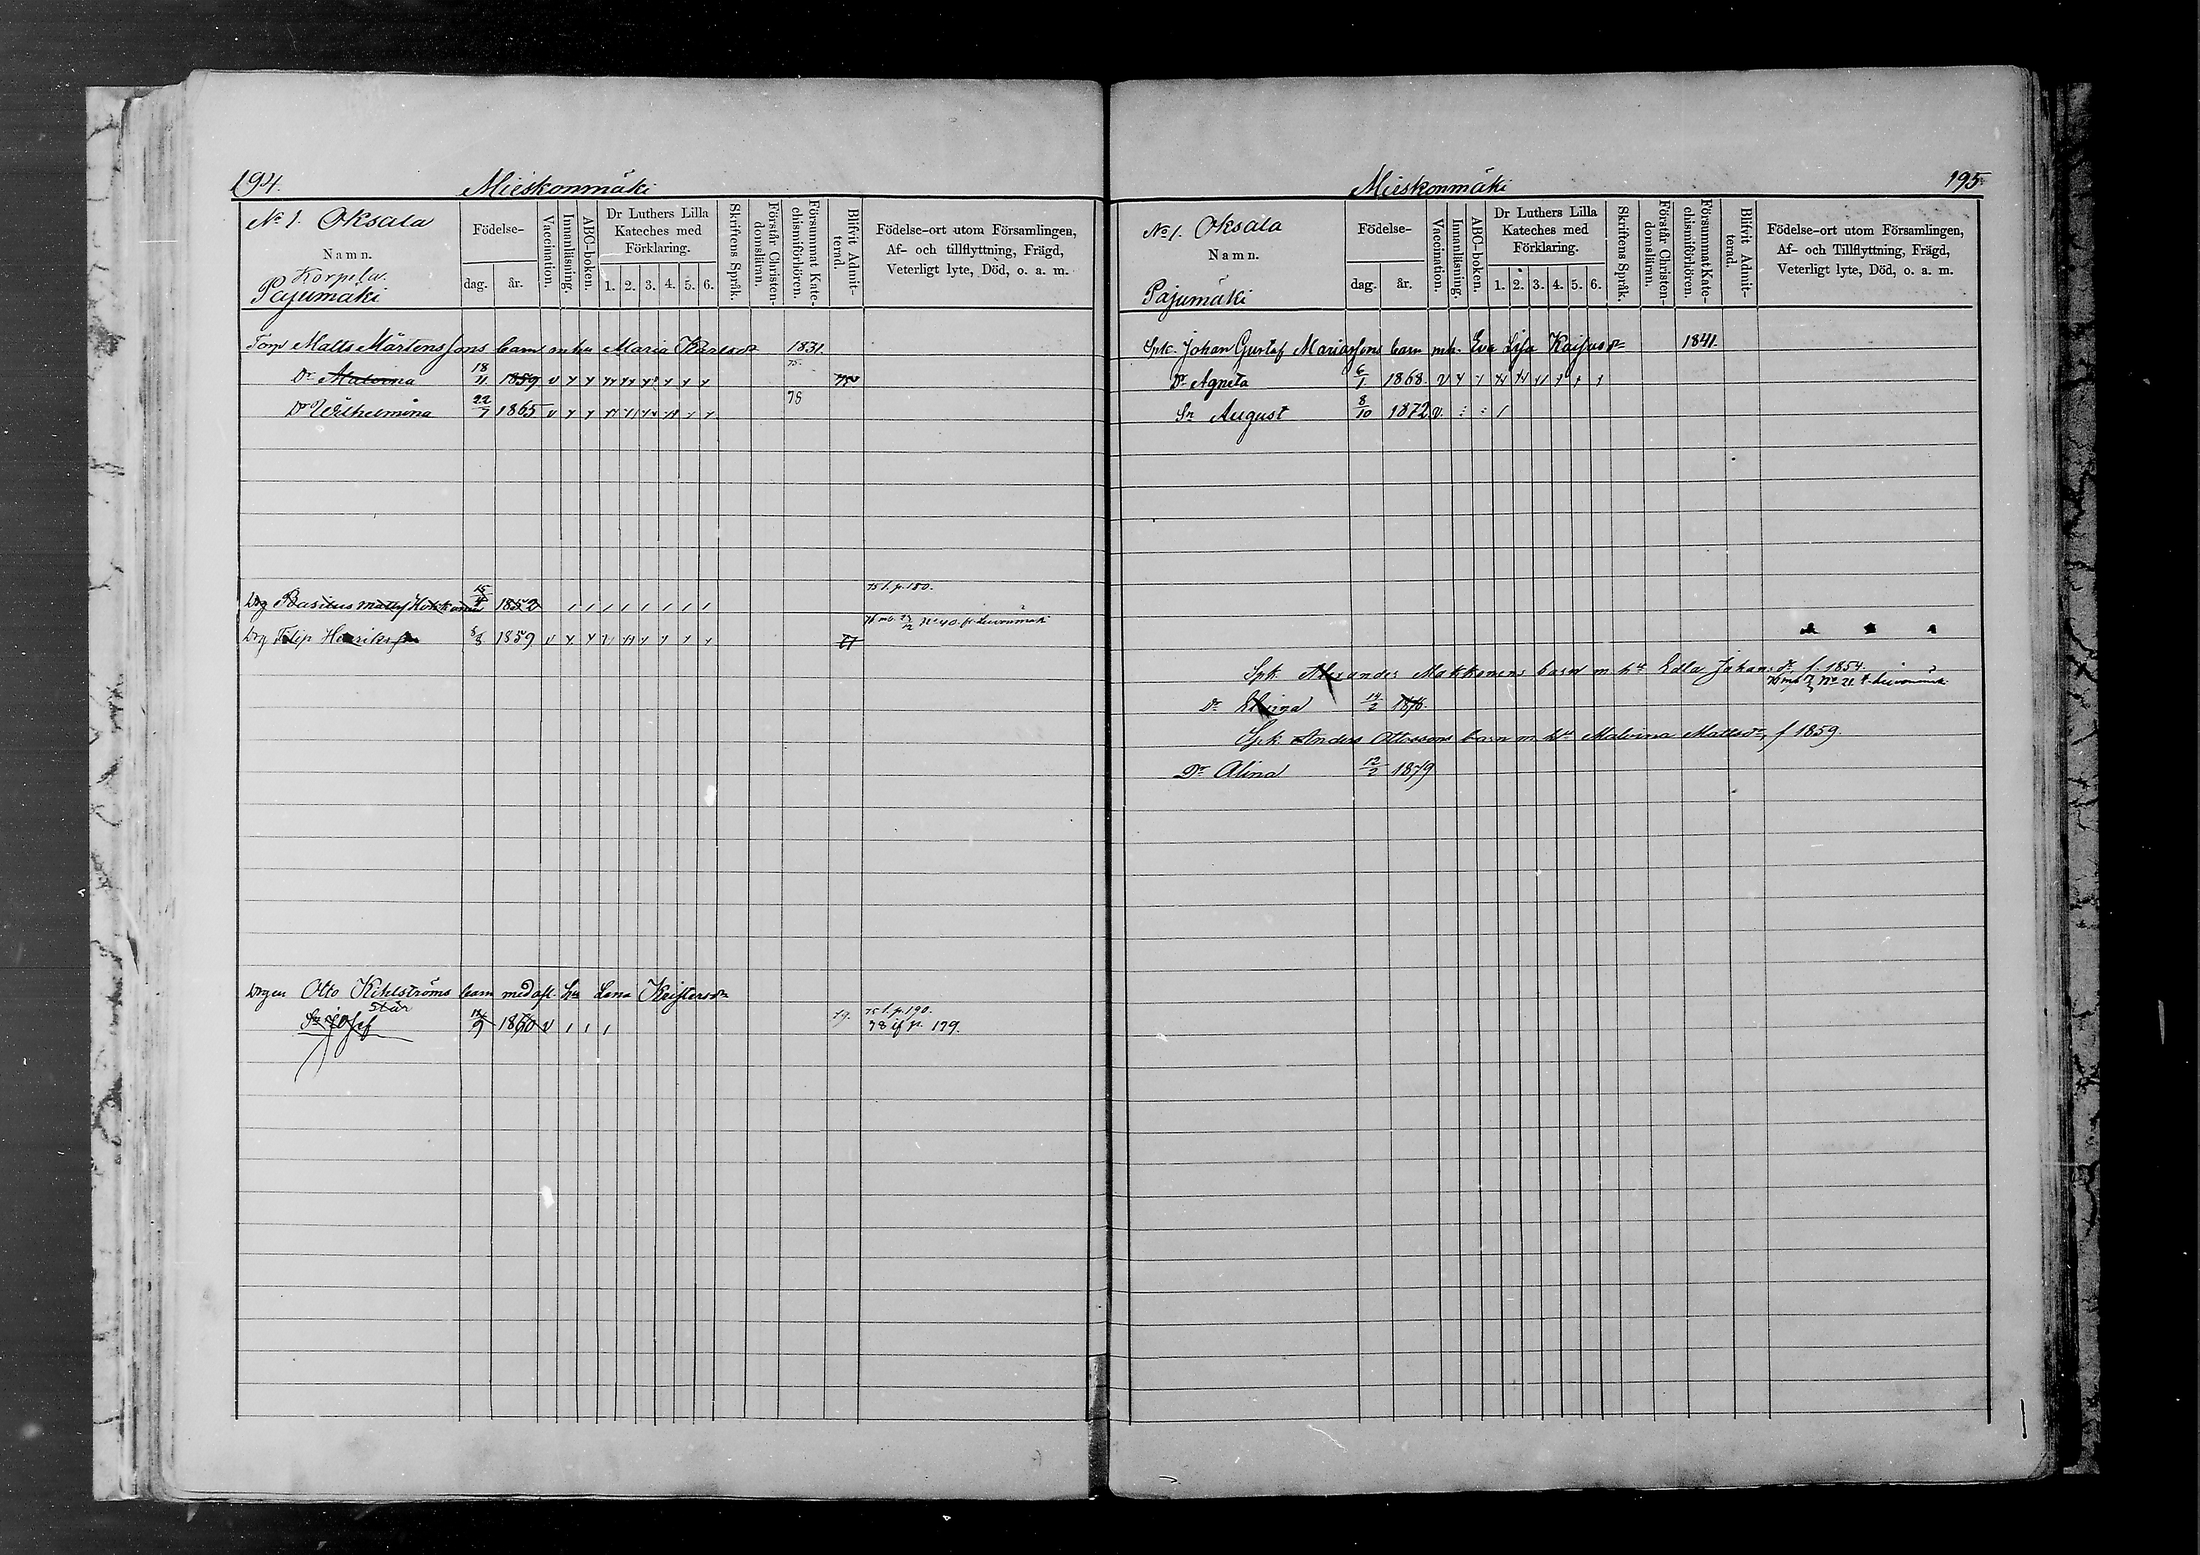 194.
Mieskonmäki
No 1. Oksala
Namn.
Korpela.
Pajumäki
Födelse-
dag.
år.
Vaccination.
Innanläsning.
ABC-boken.
Dr Luthers Lilla
Kateches med
Förklaring.
1. 2. 3. 4. 5. 6.
Skriftens Språk.
Förstår Christen-
domsläran.
Försummat Kate-
chismiförhören.
Blifvit Admit-
terad.
Födelse-ort utom Församlingen,
Af- och tillflyttning, Frägd,
Veterligt lyte, Död, o. a. m.
Torp Matts Mårtenssons barn m hu Maria Karlsdr 1831.
Dr Malvina 18/11 1859 v
75.
Dr Wilhelmina 22/7 1865 v
78
Drg Basilius Matts Hokkanen 1852
75 t. p. 180.
Drg Filip Henriksson 1859 v
No 40
Drgen Otto Kihlströms barn med afl. hu Lena Kristersdr
Sn Josef 1860 v
79.
75 t. p. 190.
78 if p. 179.
Mieskonmäki
195
No 1. Oksala
Namn.
Pajumäki
Födelse-
dag.
år.
Vaccination.
Innanläsning.
ABC-boken.
Dr Luthers Lilla
Kateches med
Förklaring.
1. 2. 3. 4. 5. 6.
Skriftens Språk.
Förstår Christen-
domsläran.
Försummat Kate-
chismiförhören.
Blifvit Admit-
terad.
Födelse-ort utom Församlingen,
Af- och Tillflyttning, Frägd,
Veterligt lyte, Död, o. a. m.
Spk. Johan Gustaf Mariassons barn mh. Eva Lisa Kaisasdr 1841.
Dr Agneta 6/1 1868. v
Sn August 8/10 1872 v.
Spk. Alexander Makkonens barn m hu Edla Johansdr f. 1854.
No 21
Dr 14/2
Spk Anders Ottossons barn m hu Malvina Mattsdr, f 1859.
Dr Alina 12/2 1879